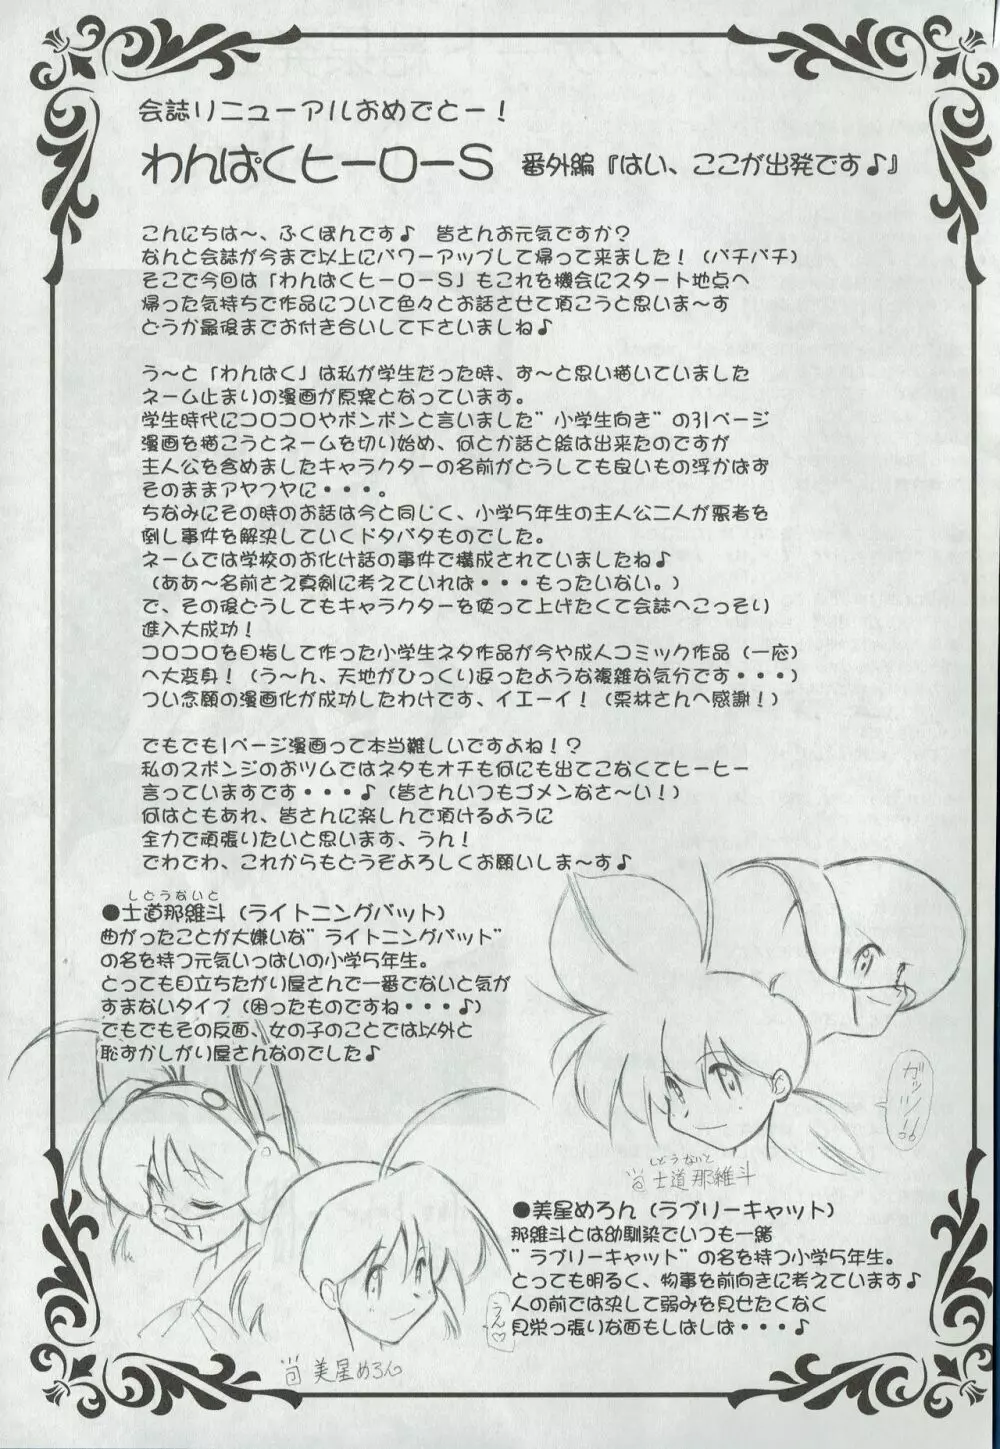 会誌リニューアルおめでとー！
わんぱくヒーローS 番外編『はい、ここが出発です♪』
こんにちは〜、ふくぽんです♪ 皆さんお元気ですか？
なんと会誌が今まで以上にパワーアップして帰って来ました！（パチパチ）
そこで今回は「わんぱくヒーローS」もこれを機会にスタート地点へ
帰った気持ちで作品について色々とお話させて頂こうと思いま〜す
どうか最後までお付き合いして下さいましね♪
う〜と「わんぱく」は私が学生だった時、ず〜と思い描いていました
ネーム止まりの漫画が原案となっています。
学生時代にコロコロやボンボンと言いました"小学生向き"の31ページ
漫画を描こうとネームを切り始め、何とか話と絵は出来たのですが
主人公を含めましたキャラクターの名前がどうしても良いもの浮かばず
そのままアヤフヤに・・・。
ちなみにその時のお話は今と同じく、小学5年生の主人公二人が悪者を
倒し事件を解決していくドタバタものでした。
ネームでは学校のお化け話の事件で構成されていましたね♪
（ああ〜名前さえ真剣に考えていれば・・・もったいない。）
で、その後どうしてもキャラクターを使って上げたくて会誌へこっそり
進入大成功！
コロコロを目指して作った小学生ネタ作品が今や成人コミック作品（一応）
へ大変身！（う〜ん、天地がひっくり返ったような複雑な気分です・・・）
つい念願の漫画化が成功したわけです、イエーイ！（栗林さんへ感謝！）
でもでも1ページ漫画って本当難しいですよね！？
私のスポンジのおツムではネタもオチも何にも出てこなくてヒーヒー
言っていますです・・・♪（皆さんいつもゴメンなさ〜い！）
何はともあれ、皆さんに楽しんで頂けるように
全力で頑張りたいと思います、うん！
でわでわ、これからもどうぞよろしくお願いしま〜す♪
しどうないと
●士道那維斗（ライトニングバット）
曲がったことが大嫌いな"ライトニングバット"
の名を持つ元気いっぱいの小学5年生。
とっても目立ちたがり屋さんで一番でないと気が
すまないタイプ（困ったものですね・・・♪）
でもでもその反面、女の子のことでは以外と
恥ずかしがり屋さんなのでした♪
ガッツ！！
しどうないと
士道那維斗
●美星めろん（ラブリーキャット）
那維斗とは幼馴染でいつも一緒
"ラブリーキャット"の名を持つ小学5年生。
とっても明るく、物事を前向きに考えています♪
人の前では決して弱みを見せたくなく
見栄っ張りな面もしばしば・・・♪
うん♡
美星めろん